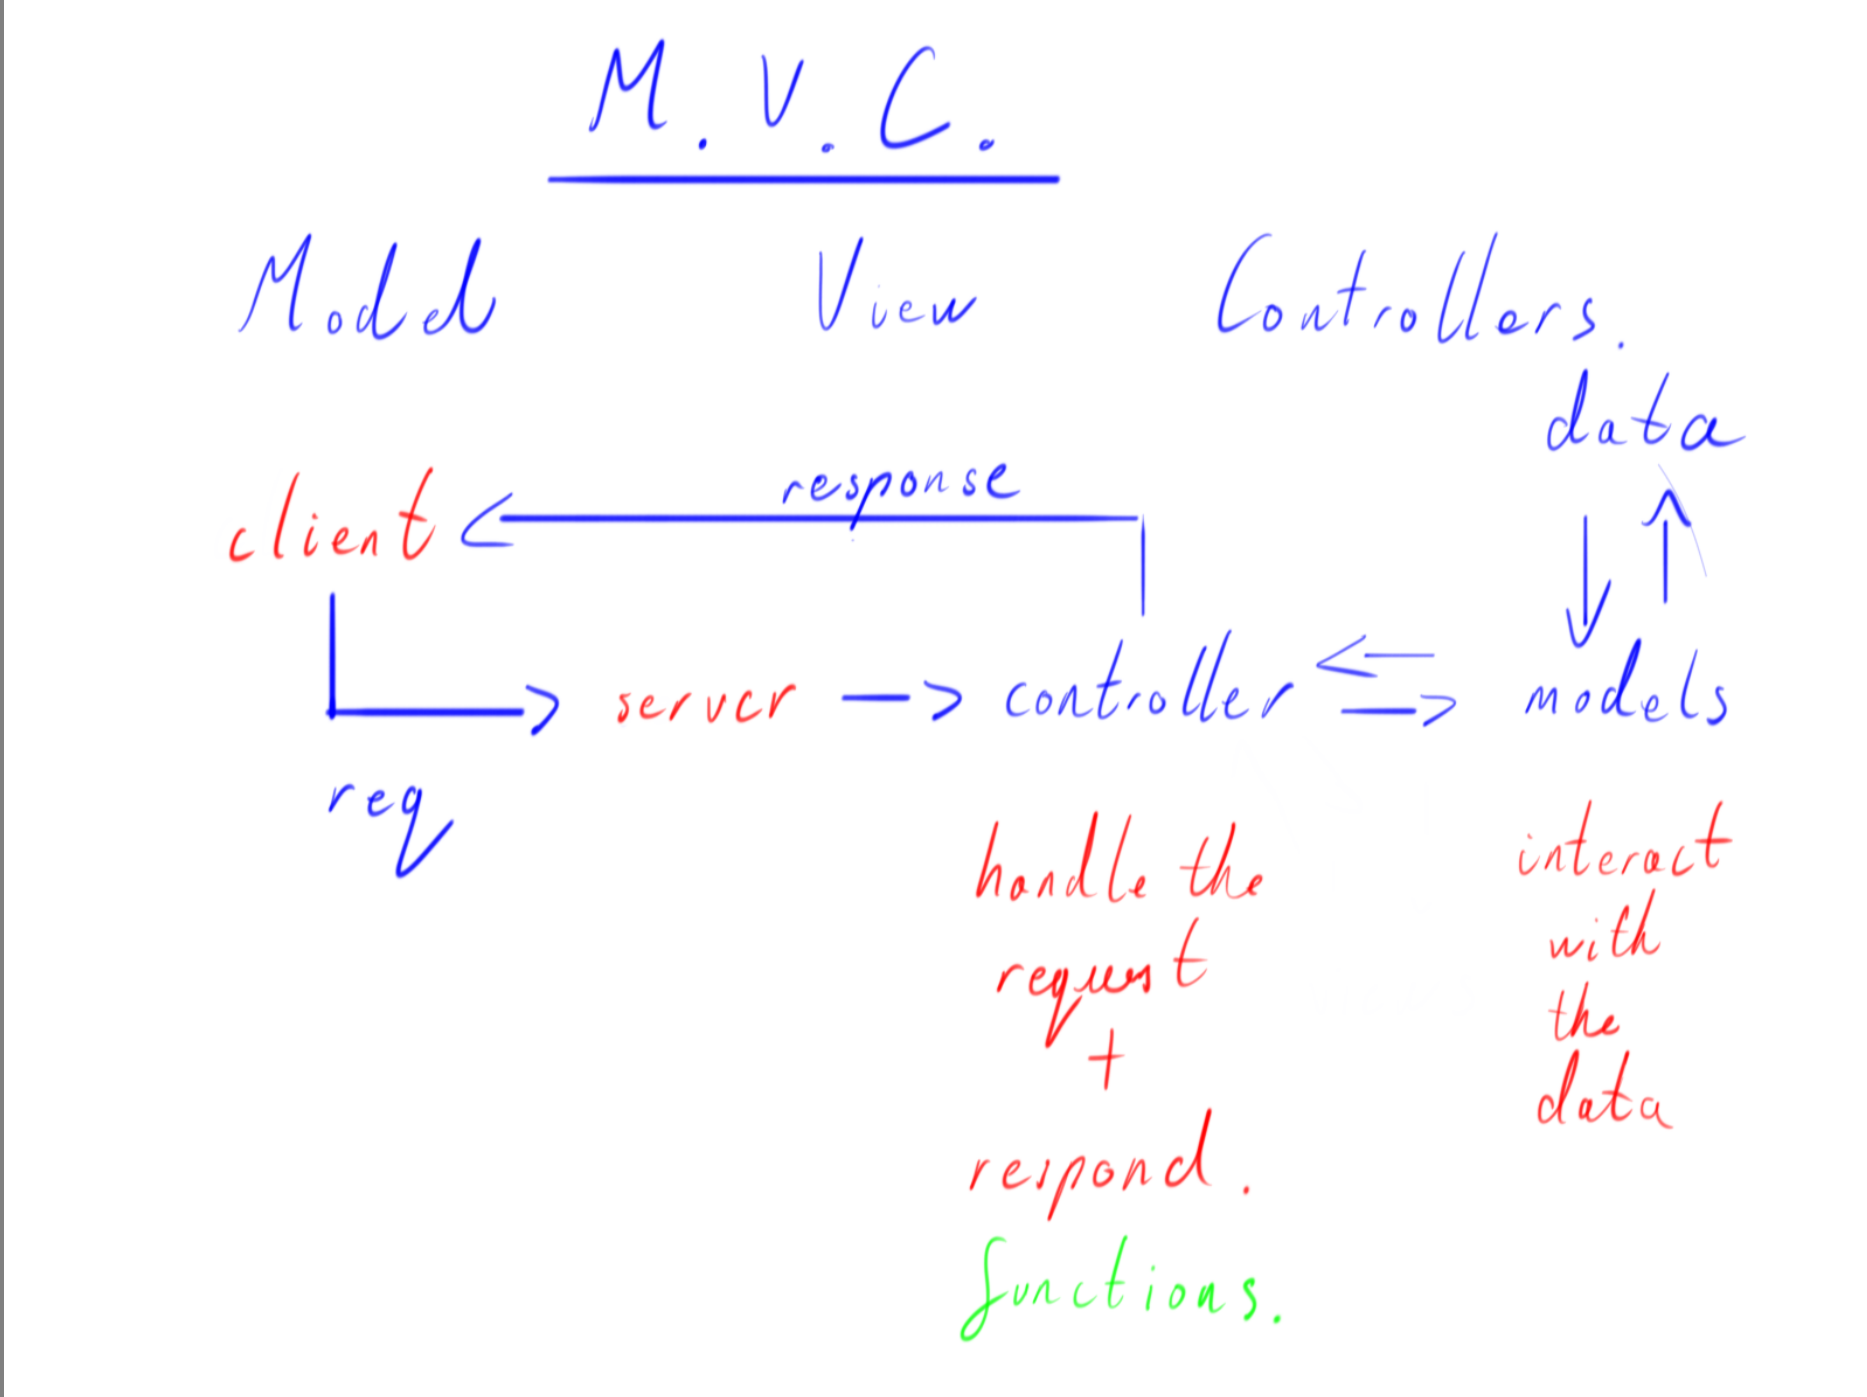 M.V.C.
Model View Controllers.
data
response
client
server controller models
req
handle the
request
+
respond.
functions.
interact
with
the
data